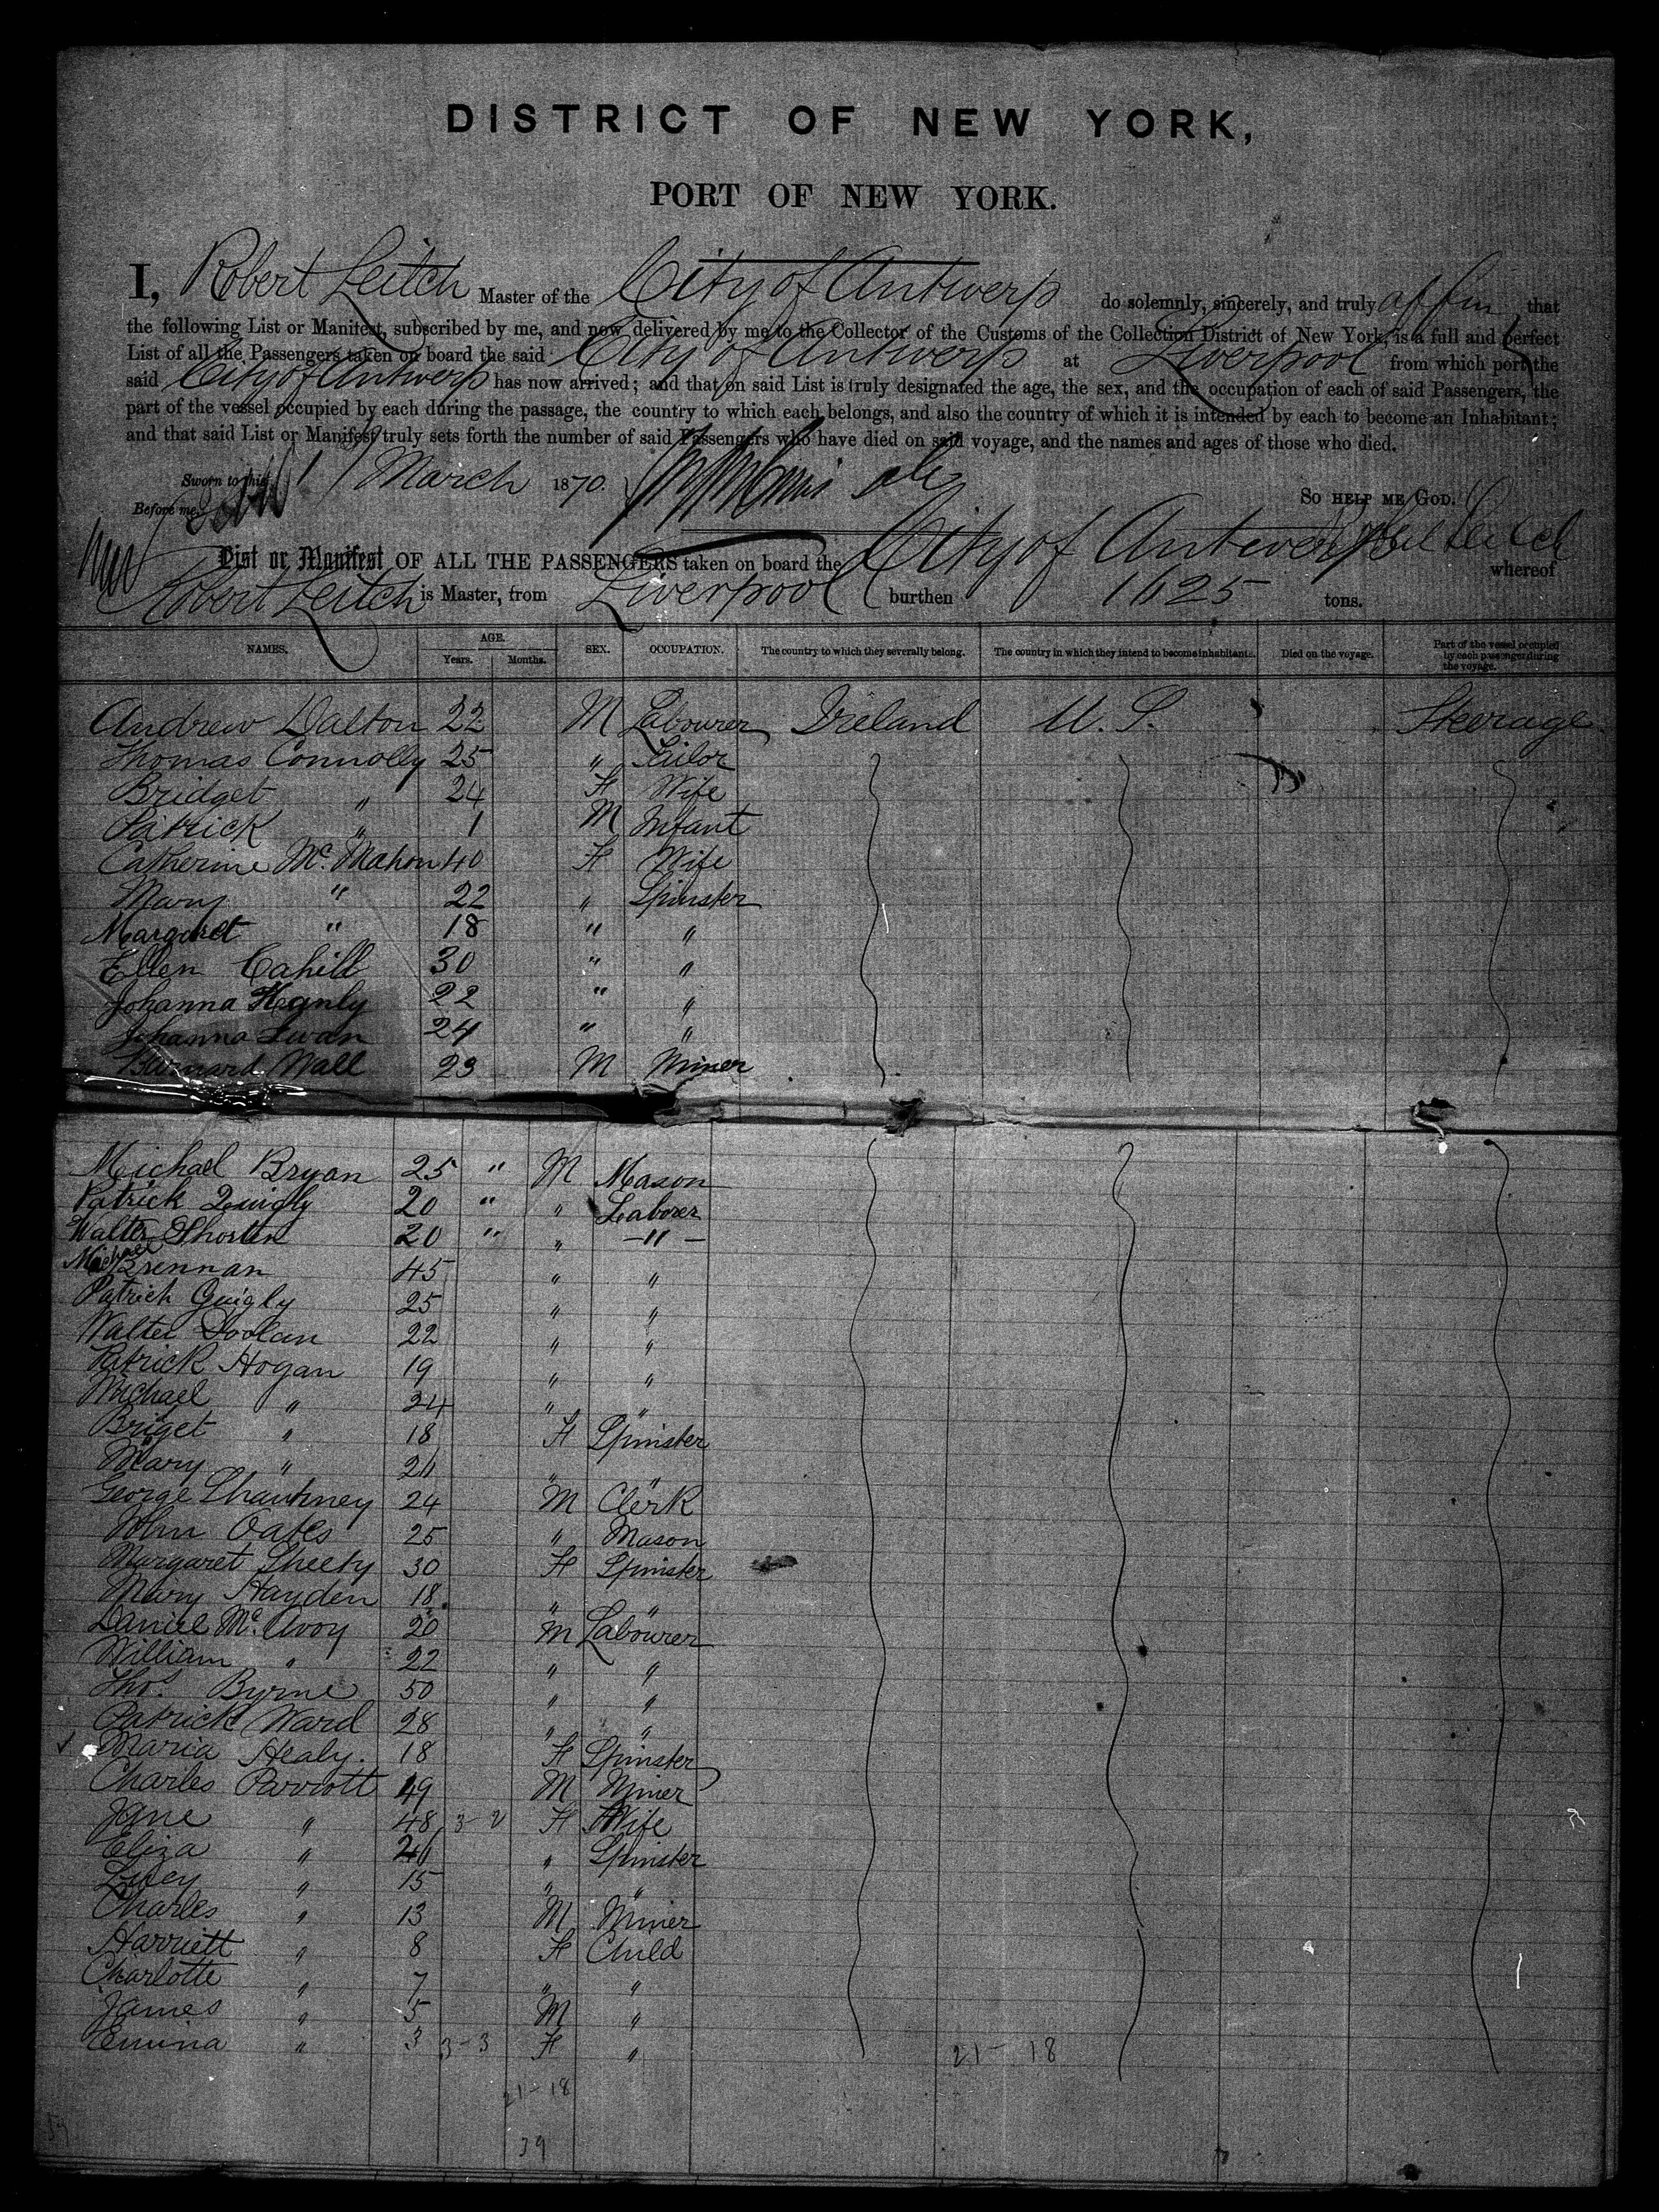 DISTRICT OF NEW YORK,
PORT OF NEW YORK.
I, Robert Leitch Master of the City of Antwerp do solemnly, sincerely, and truly affirm that
the following List or Manifest, subscribed by me, and now delivered by me to the Collector of the Customs of the Collection District of New York, is a full and perfect
List of all the Passengers taken on board the said City of Antwerp at Liverpool from which port the
said City of Antwerp has now arrived; and that on said List is truly designated the age, the sex, and the occupation of each of said Passengers, the
part of the vessel occupied by each during the passage, the country to which each belongs, and also the country of which it is intended by each to become an Inhabitant;
and that said List or Manifest truly sets forth the number of said Passengers who have died on said voyage, and the names and ages of those who died.
Sworn to this 1 March 1870.
So HELP ME GOD.
Before me, Robert Leitch
List or Manifest OF ALL THE PASSENGERS taken on board the City of Antwerp whereof
Robert Leitch is Master, from Liverpool burthen 1625 tons.
NAMES. AGE. Years. Months. SEX. OCCUPATION. The country to which they severally belong. The country in which they intend to become inhabitants. Died on the voyage. Part of the vessel occupied by each passenger during the voyage.
Andrew Dalton 22 M Labourer Ireland U.S. Steerage
Thomas Connolly 25 " Tailor
Bridget " 24 F Wife
Patrick " 1 M Infant
Catherine Mc. Mahon 40 F Wife
Mary " 22 " Spinster
Margaret " 18 " "
Ellen Cahill 30 " "
Johanna Heanly 22 " "
Johanna Swan 24 " "
Barnard Wall 23 M Miner
Michael Bryan 25 " M Mason
Patrick Quigly 20 " " Laborer
Walter Shorten 20 " " -"-
Michael Brennan 45 " "
Patrick Quigly 25 " "
Walter Doolan 22 " "
Patrick Hogan 19 " "
Michael " 24 " "
Briget " 18 F Spinster
Mary " " "
George 24 M Clerk
John Oates 25 " Mason
Margaret Sheehy 30 F Spinster
Mary Hayden 18 " "
Daniel Mc. Avoy 20 M Labourer
William " 22 " "
Thos. Byrne 50 " "
Patrick Ward 28 " "
Maria Healy. 18 F Spinster
Charles Parrott 49 M Miner
Jane " 48 3-2 F Wife
Eliza " " Spinster
Lucy " 15 " "
Charles " 13 M Miner
Harriett " 8 F Child
Charlotte " 7 " "
James " 5 M "
Emma " 3 3-3 F "
21-18
21-18
39